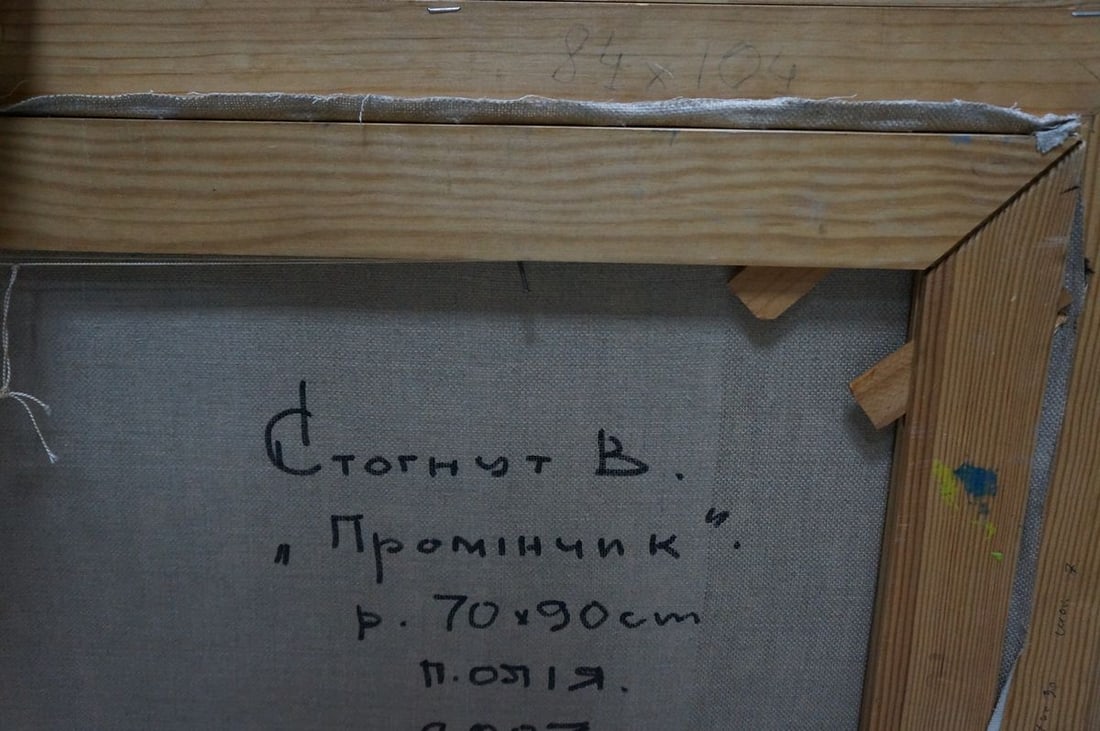 84 x 104
Стогнут В.
„Промінчик".
р. 70x90cm
п.олія.